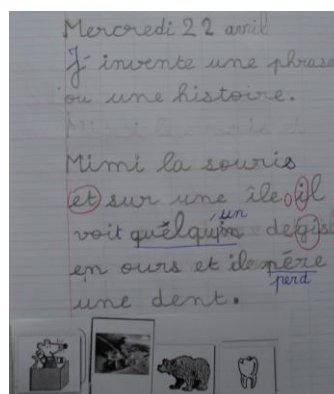 Mercredi 22 avril
J'invente une phrase
ou une histoire.
Mimi la souris
et sur une île, il
un
voit quelqu'un de gise
en ours et ile père
perd
une dent.